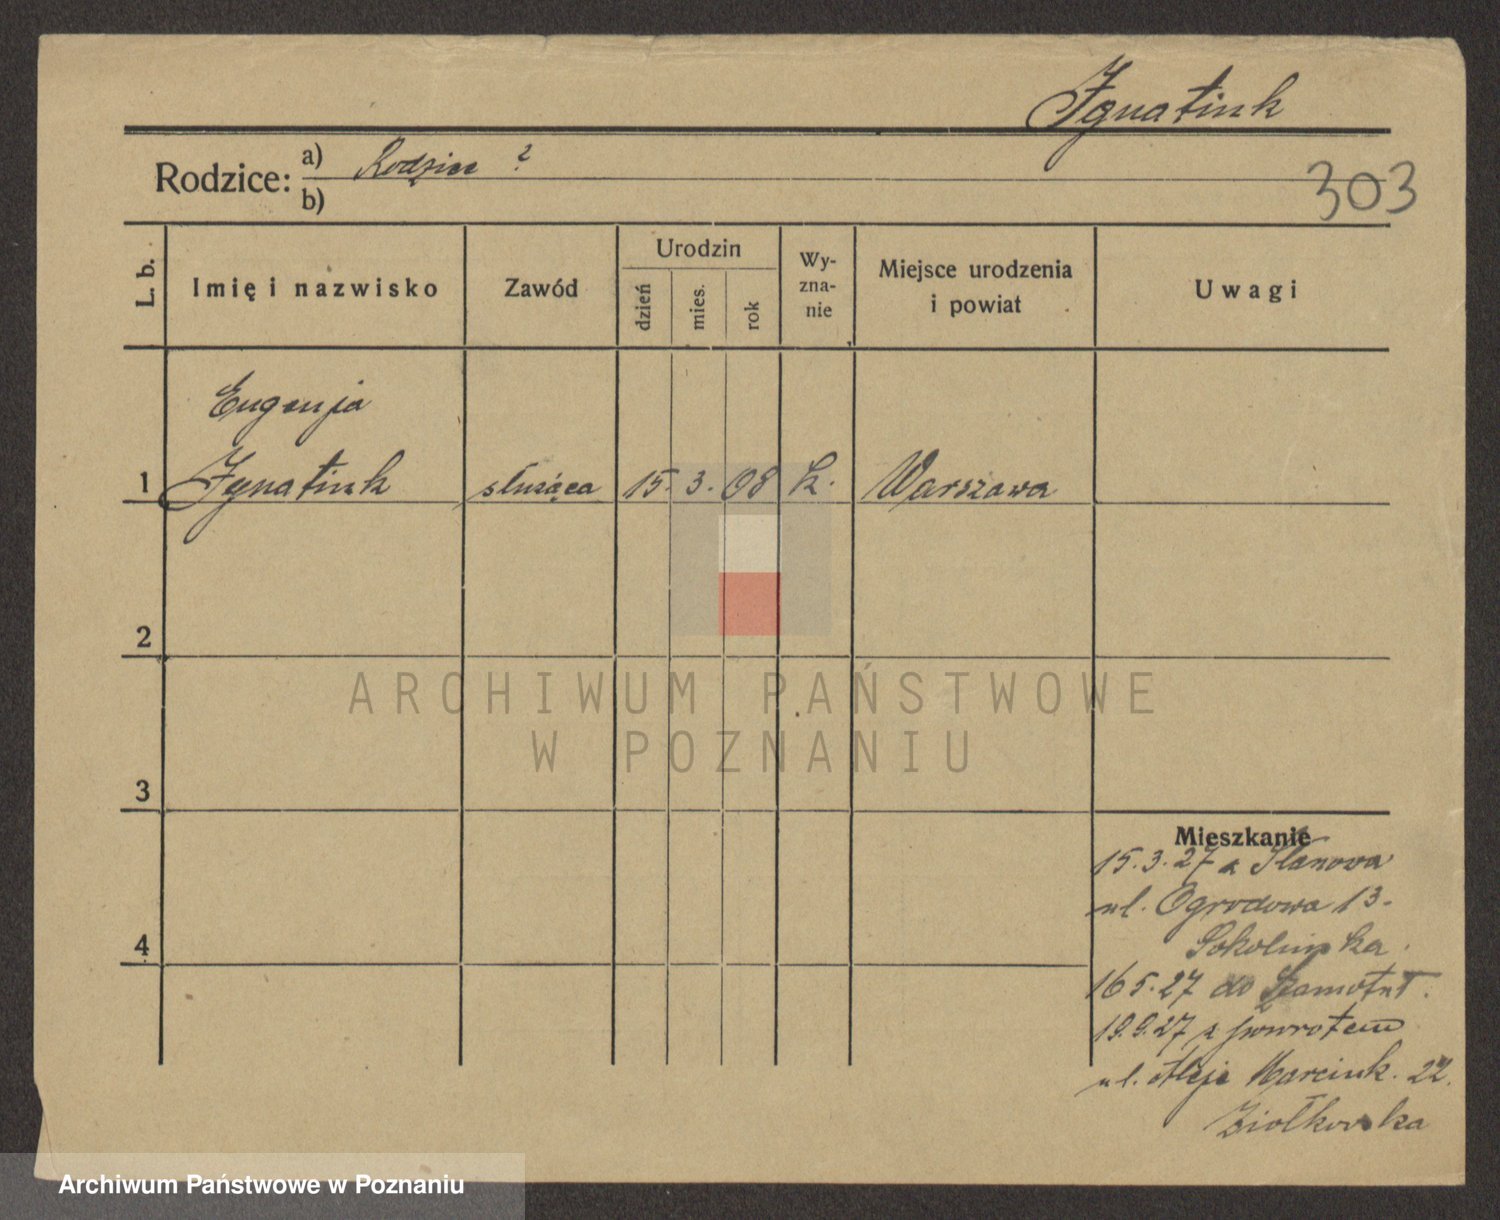 Ignatiuk
Rodzice: a) Rodzice ?
b)
303
L. b.
Imię i nazwisko
Zawód
Urodzin
dzień
mies.
rok
Wy-
zna-
nie
Miejsce urodzenia
i powiat
Uwagi
Eugenja
1 Ignatiuk służąca 15. 3. 08 k. Warszawa
2
3
4
Mieszkanie
15.3.27 z
ul. Ogrodowa 13.
16 5.27 do Szamotuł.
19.9.27 z powrotem
ul. Aleje Marcink. 22.
Ziołkowska
ARCHIWUM PAŃSTWOWE
W POZNANIU
Archiwum Państwowe w Poznaniu